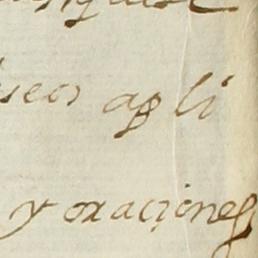 seos apli
y oraciones